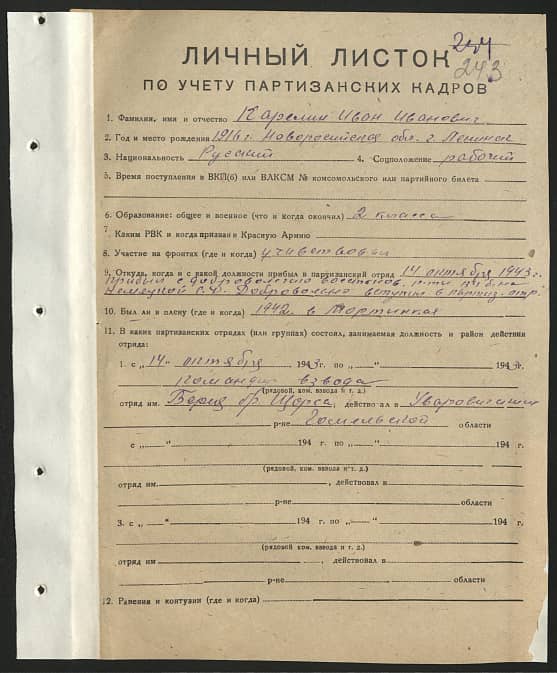 ЛИЧНЫЙ ЛИСТОК
244
243
ПО УЧЕТУ ПАРТИЗАНСКИХ КАДРОВ
1. Фамилия, имя и отчество Карелин Иван Иванович
2. Год и место рождения 1916 г. обл. г.
3. Национальность Русский 4. Соцположение рабочий
5. Время поступления в ВКП(б) или ВЛКСМ № комсомольского или партийного билета
6. Образование: общее и военное (что и когда окончил) 2 класса
7. Каким РВК и когда призван в Красную Армию
8. Участие на фронтах (где и когда) участвовал
9. Откуда, когда и с какой должности прибыл в партизанский отряд 14 октября 1943 г.
Прибыл с
Добровольно вступил в партиз. отр.
10. Был ли в плену (где и когда) 1942 г. в
11. В каких партизанских отрядах (или группах) состоял, занимаемая должность и район действия
отряда:
1. с „14“ октября 1943 г. по „—“ 1943 г.
командир взвода
(рядовой, ком. взвода и т. д.)
отряд им. Берия бр. Щорса, действовал в
р-не Гомельской области
с „—“ 194 г. по „—“ 194 г.
(рядовой, ком. взвода и т. д.)
отряд им., действовал в
р-не области
3. с „—“ 194 г. по „—“ 194 г.
(рядовой, ком. взвода и т. д.)
отряд им, действовал в
р-не области
12. Ранения и контузии (где и когда)